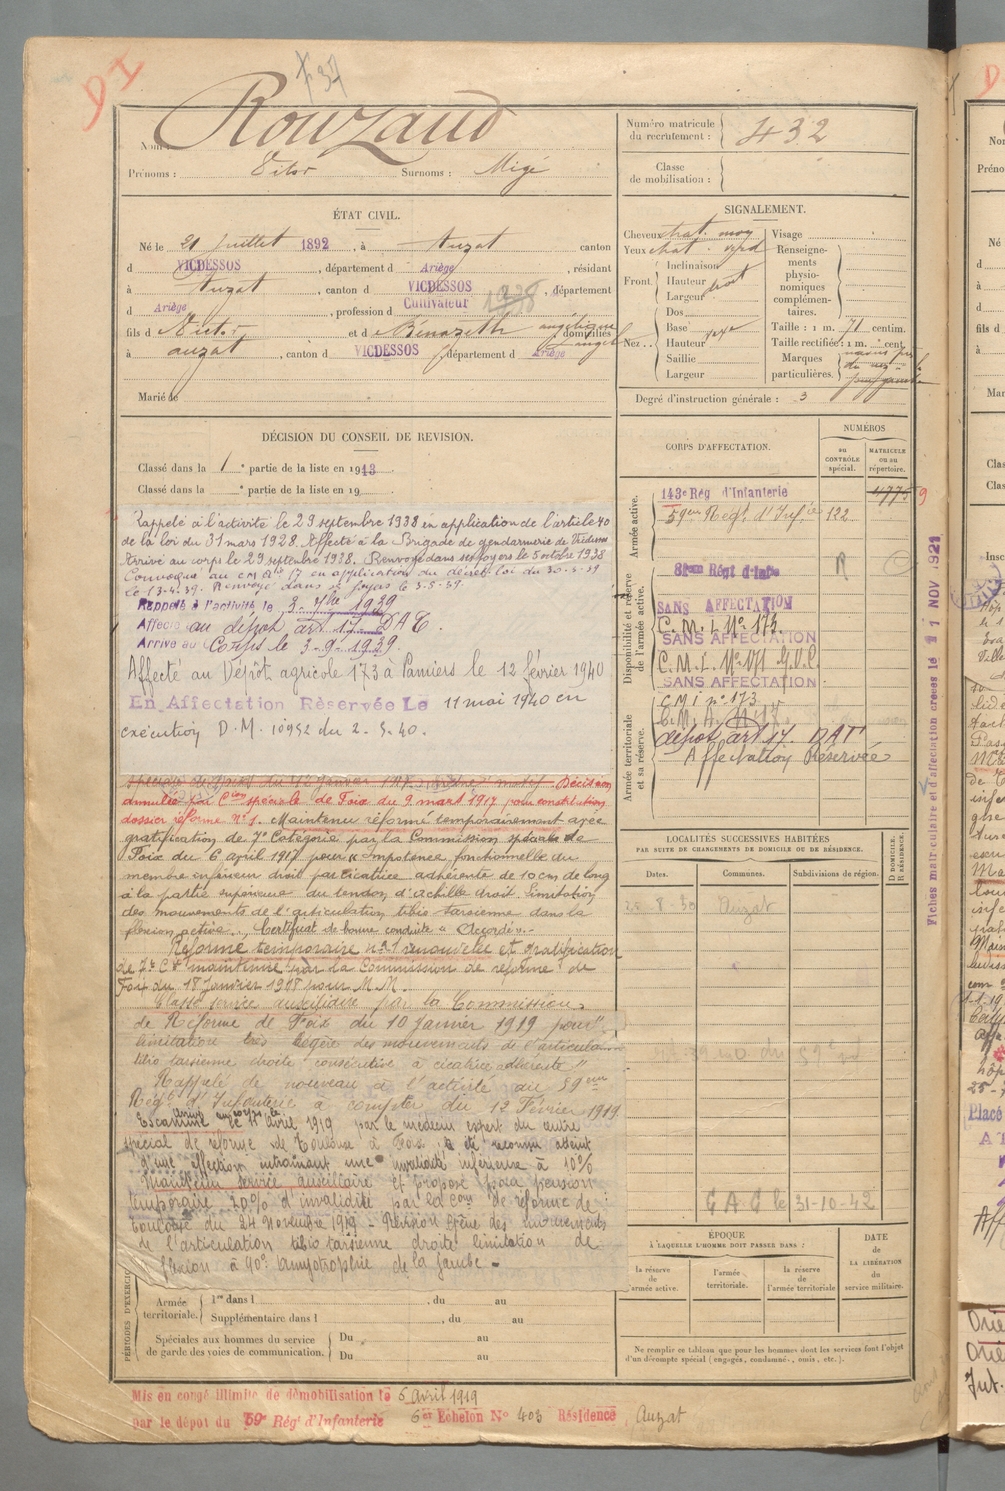 DI
Nom : Rouzaud
Prénoms : Victor Surnoms : Migé
Numéro matricule du recrutement : 432
Classe de mobilisation :
ÉTAT CIVIL.
Né le 21 Juillet 1892, à Auzat canton
d VICDESSOS, département d Ariège, résidant
à Auzat, canton d VICDESSOS, département
d Ariège, profession d Cultivateur
fils d Victor et d Bénazeth angélique domiciliés
à auzat, canton d VICDESSOS département d Ariège
Marié le
SIGNALEMENT.
Cheveux chat. moy
Yeux chat. verd
Front. Inclinaison
Hauteur
Largeur droit
Nez.. Dos
Base
Hauteur
Saillie
Largeur
Visage
Renseignements physionomiques complémentaires.
Taille : 1 m. 71 centim.
Taille rectifiée : 1 m. cent.
Marques particulières.
Degré d'instruction générale : 3
DÉCISION DU CONSEIL DE REVISION.
Classé dans la 1e partie de la liste en 1913
Classé dans la e partie de la liste en 19
Rappelé à l'activité le 29 septembre 1938 en application de l'article 40
de la loi du 31 mars 1928. Affecté à la Brigade de gendarmerie de
Arrivé au corps le 29 septembre 1938. Renvoyé dans ses foyers le 5 octobre 1938
Convoqué au CM Aie 17 en application du décret loi du 20-3-39
le 13-4-39. Renvoyé dans ses foyers le 3-5-39.
Rappelé à l'activité le 3-7bre 1939
Affecté au dépôt art 17 DAT.
Arrivé au Corps le 3-9-1939.
Affecté au Dépôt agricole 173 à Pamiers le 12 février 1940
En Affectation Réservée Le 11 mai 1940 en
exécution D.M. 10952 du 2-5-40.
spéciale de Foix du 12 janvier 1917 motif Décision
annulée par Cion spéciale de Foix du 9 mars 1917 pour constitution
dossier réforme n° 1. Maintenu réformé temporairement avec
gratification de 7e Catégorie par la Commission spéciale de
Foix du 6 avril 1917 pour "Impotence fonctionnelle du
membre inférieur droit par cicatrice adhérente de 10 cm de long
à la partie supérieure du tendon d'Achille droit. limitation
des mouvements de l'articulation tibio tarsienne dans la
flexion active". Certificat de bonne conduite "Accordé".-
Réforme temporaire n° 1 renouvelée et gratification
de 7e Cie maintenue par la Commission de réforme de
Foix du 18 Janvier 1918 pour M.M.
Classé service auxiliaire par la Commission
de Réforme de Foix du 10 janvier 1919 pour "
limitation très légère des mouvements de l'articulation
tibio tarsienne droite consécutive à cicatrice adhérente"
Rappelé de nouveau à l'activité au 59eme
Régt d'Infanterie à compter du 12 Février 1919.
arrivé au corps le
Examiné le 11 avril 1919 par le médecin expert du centre
spécial de réforme de Toulouse à Foix a été reconnu atteint
d'une affection entraînant une invalidité inférieure à 10%
Maintenu service auxiliaire et proposé pour pension
temporaire 20% d'invalidité par la Com de réforme de
Toulouse du 24 Novembre 1919 - Révision gêne des mouvements
de l'articulation tibio tarsienne droite limitation de
flexion à 90° amyotrophie de la jambe -
CORPS D'AFFECTATION.
NUMÉROS
au CONTRÔLE spécial.
MATRICULE ou au répertoire.
Armée active.
143e Rég d'Infanterie
59eme Régt d'Infie 122
Disponibilité et réserve de l'armée active.
81eme Régt d'Infie R
SANS AFFECTATION
C.M.I. N° 173.
SANS AFFECTATION
C.M.I. N° 171 G.V.C.
SANS AFFECTATION
Armée territoriale et sa réserve.
C M I n° 173
C.M.A. N° 17
dépot art 17 DAT
Affectation Réservée
Fiches matriculaire et d'affectation creées le 11 NOV 1921
LOCALITÉS SUCCESSIVES HABITÉES
PAR SUITE DE CHANGEMENTS DE DOMICILE OU DE RÉSIDENCE.
Dates. Communes. Subdivisions de région. D DOMICILE. R RÉSIDENCE.
-8-30 Auzat
C A C le 31-10-42
ÉPOQUE
À LAQUELLE L'HOMME DOIT PASSER DANS :
la réserve de l'armée active.
l'armée territoriale.
la réserve de l'armée territoriale
DATE de LA LIBÉRATION du service militaire.
Ne remplir ce tableau que pour les hommes dont les services font l'objet
d'un décompte spécial (engagés, condamnés, omis, etc.).
PÉRIODES D'EXERCICES
Armée territoriale. 1re dans l , du au
Supplémentaire dans l , du au
Spéciales aux hommes du service de garde des voies de communication. Du au
Du au
Mis en congé illimité de démobilisation le 5 avril 1919
par le dépôt du 59e Régt d'Infanterie 6er Echelon N° 403 Résidence Auzat